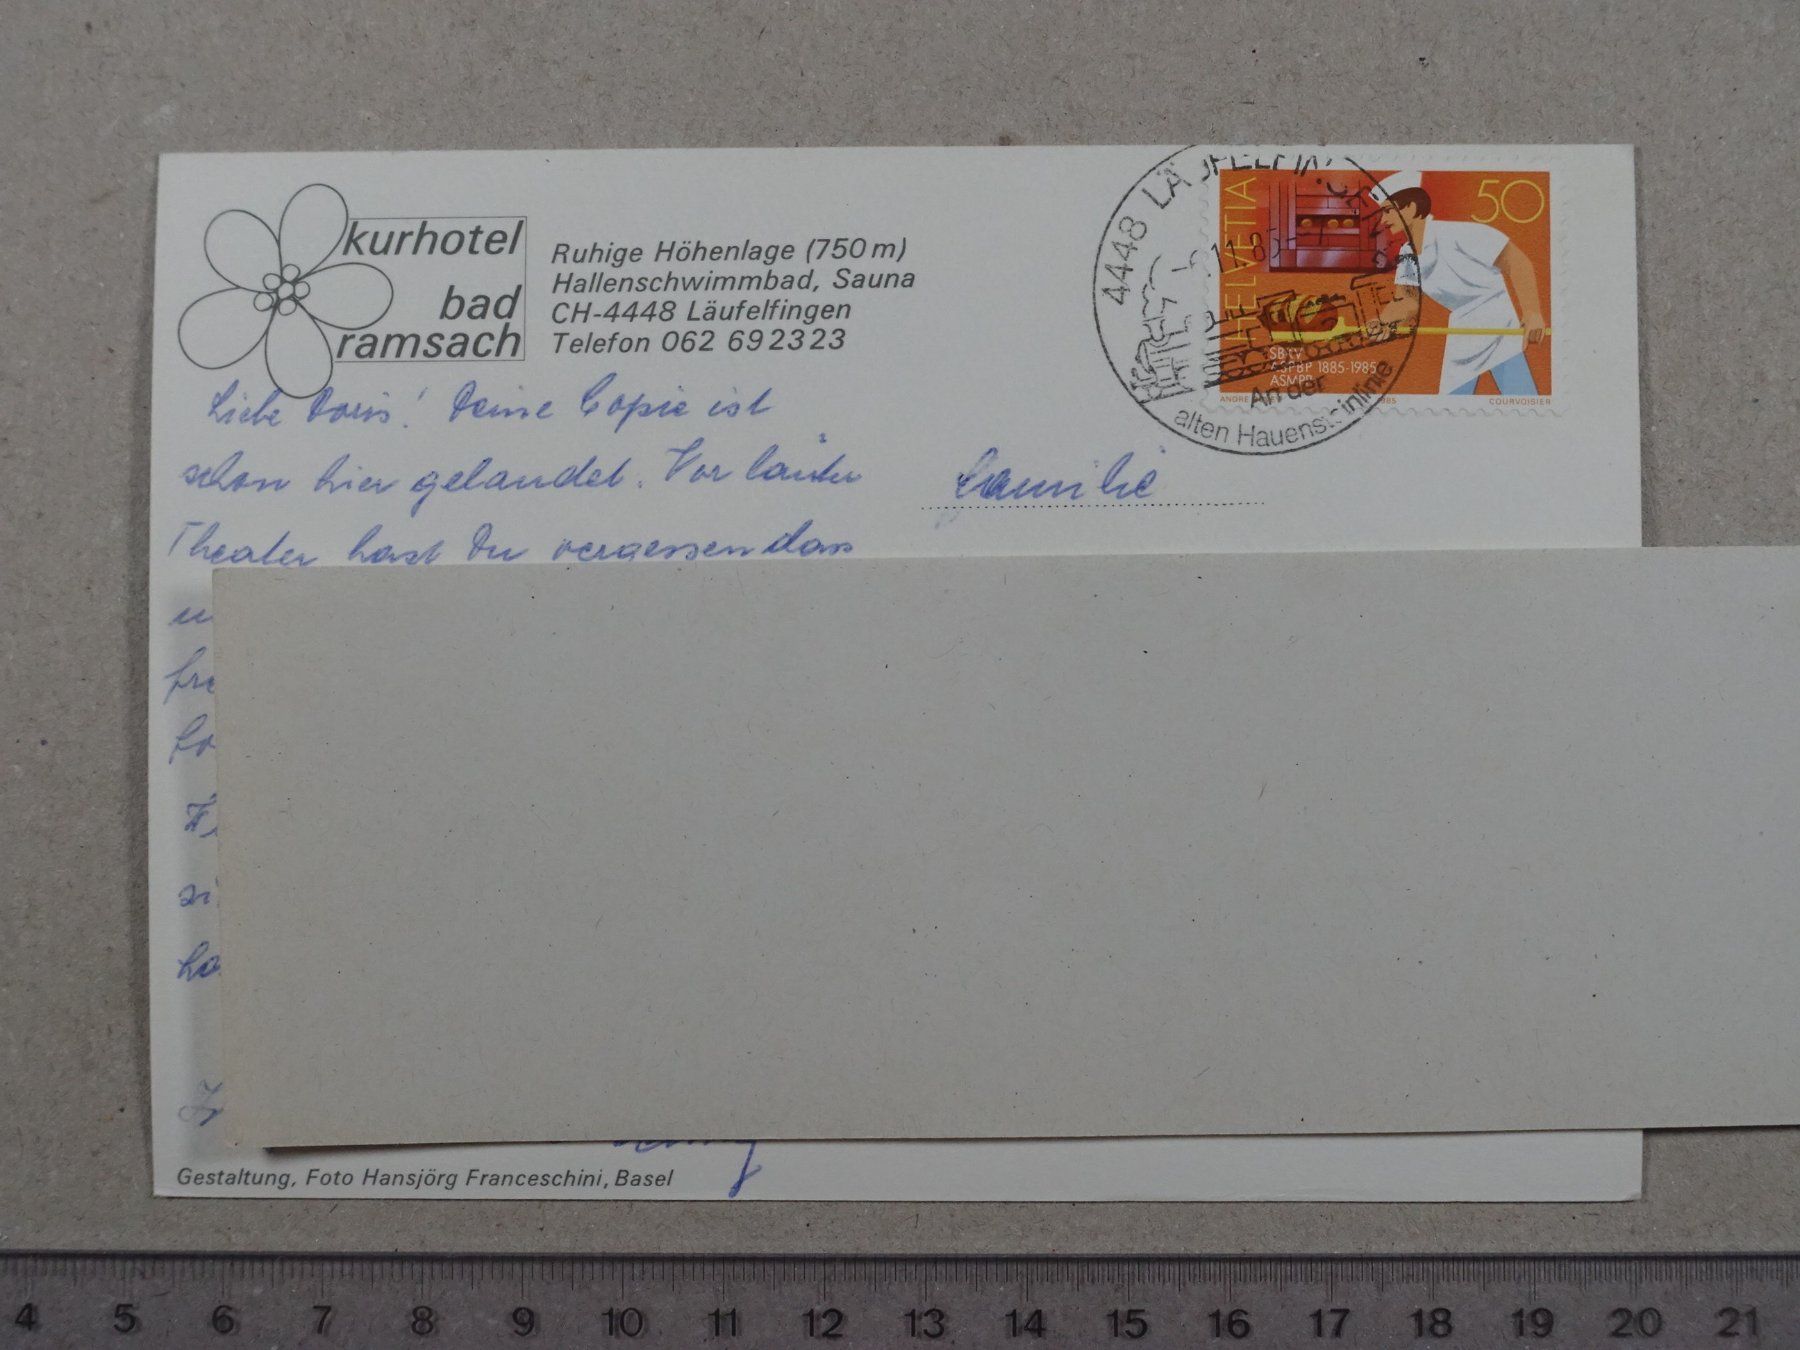 kurhotel
bad
ramsach
Ruhige Höhenlage (750 m)
Hallenschwimmbad, Sauna
CH-4448 Läufelfingen
Telefon 062 69 23 23
4448 LÄUFELFINGEN
11.85
An der
alten Hauensteinlinie
HELVETIA
50
SBKV
ASPBP 1885-1985
ASMPP
COURVOISIER
Liebe Doris! Deine Copie ist
schon hier gelandet. Vor lauter
Theater hast Du vergessen dass
Familie
Gestaltung, Foto Hansjörg Franceschini, Basel
4 5 6 7 8 9 10 11 12 13 14 15 16 17 18 19 20 21